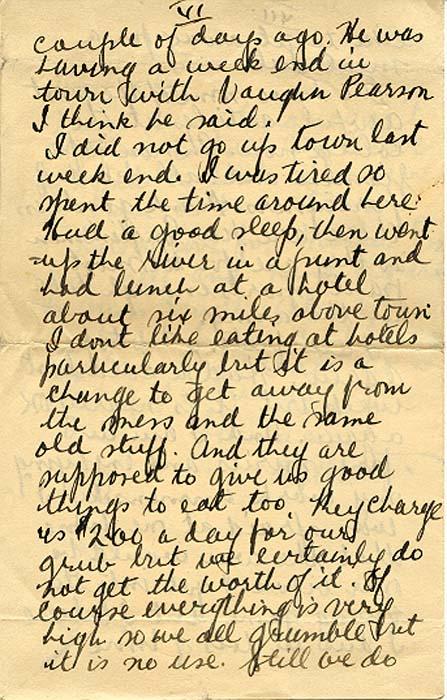 VI
couple of days ago. He was
having a week end in
town with Vaughn Pearson
I think he said.
I did not go up town last
week end. I was tired so
spent the time around here.
Had a good sleep, then went
up the river in a punt and
had lunch at a hotel
about six miles above town
I dont like eating at hotels
particularly but it is a
change to get away from
the mess and the same
old stuff. And they are
supposed to give us good
things to eat too. They charge
us $2.00 a day for our
grub but we certainly do
not get the worth of it. Of
course everything is very
high so we all grumble but
it is no use. Still we do